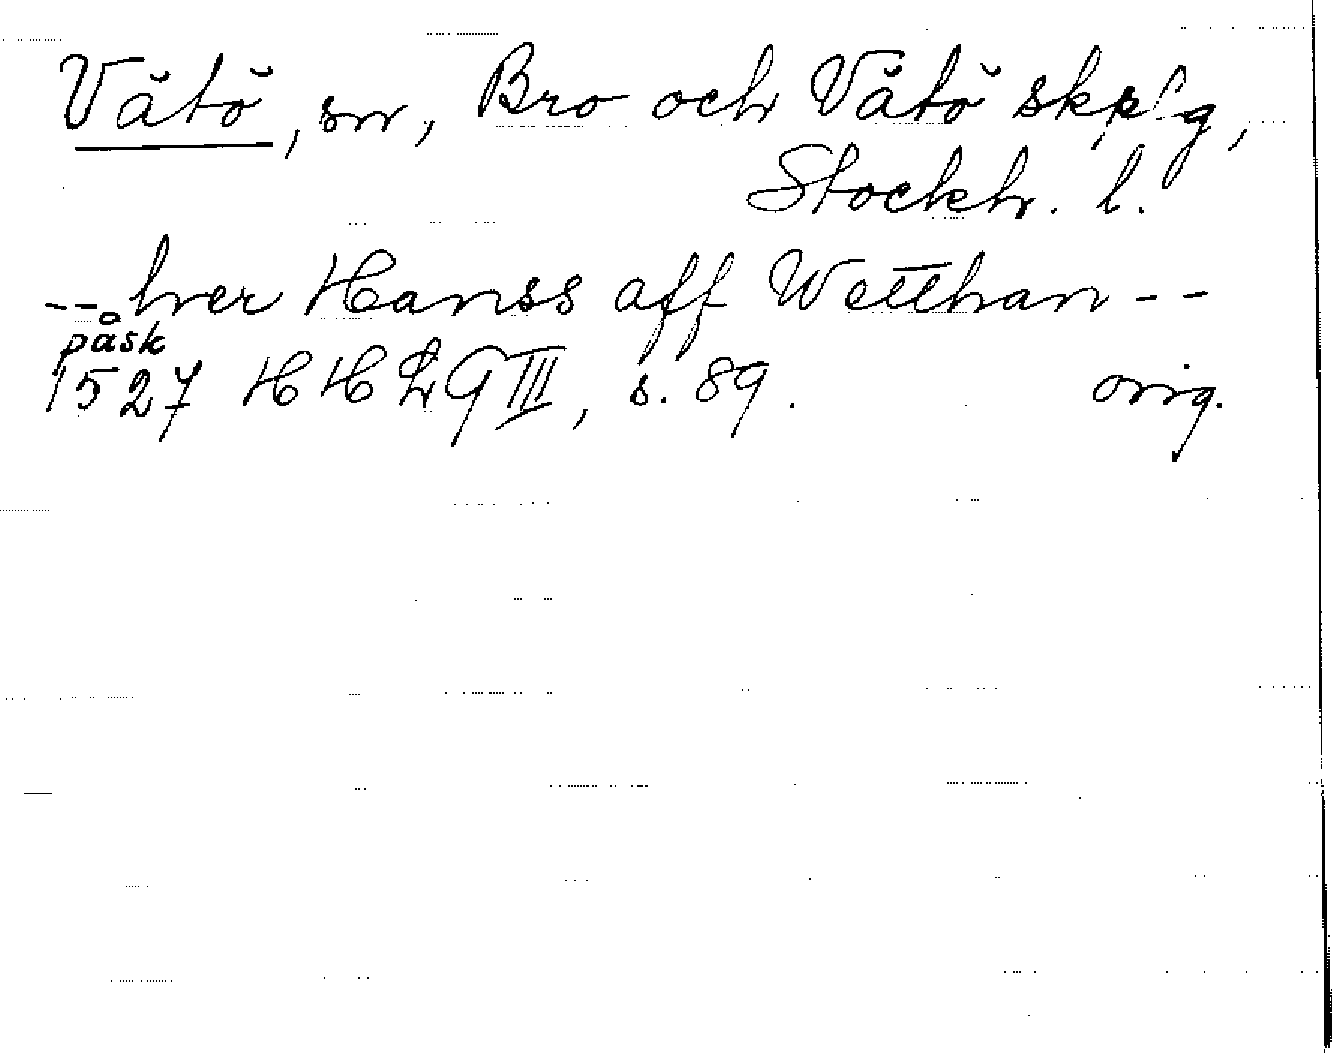 Vätö, sn, Bro och Vätö skplg,
Stockh. l.
-- her Hanss aff Wetthan --
påsk
1527 HH LG III, s. 89. orig.